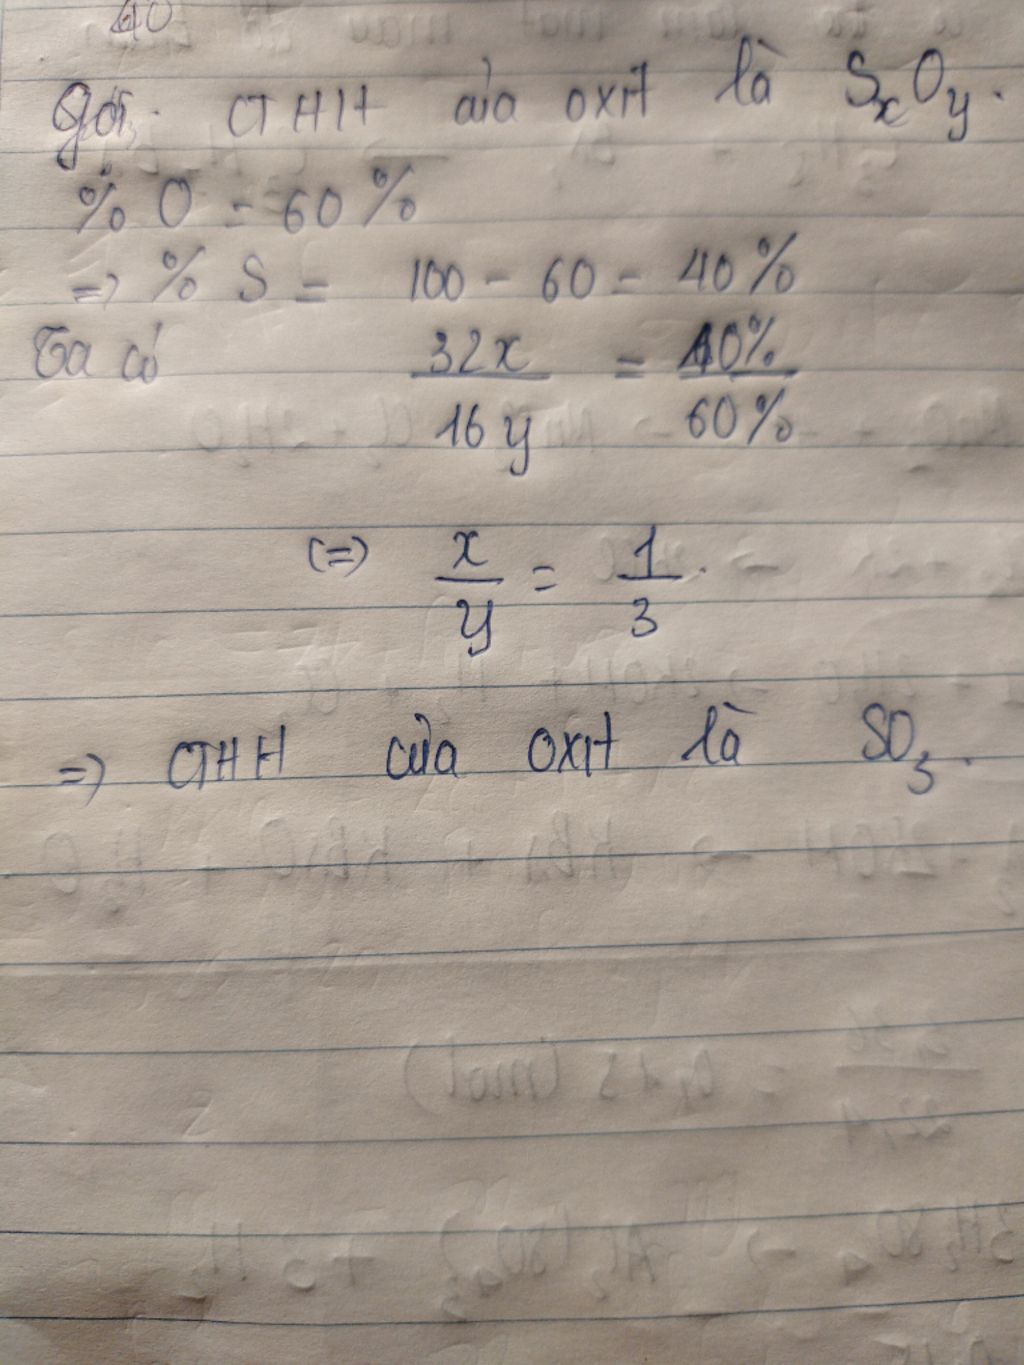 40
Gọi CTHH của oxit là SₓOᵧ.
% O = 60 %
=> % S = 100 - 60 = 40 %
Ta có 32x / 16y = 40% / 60%
(=) x / y = 1 / 3.
=> CTHH của oxit là SO₃.